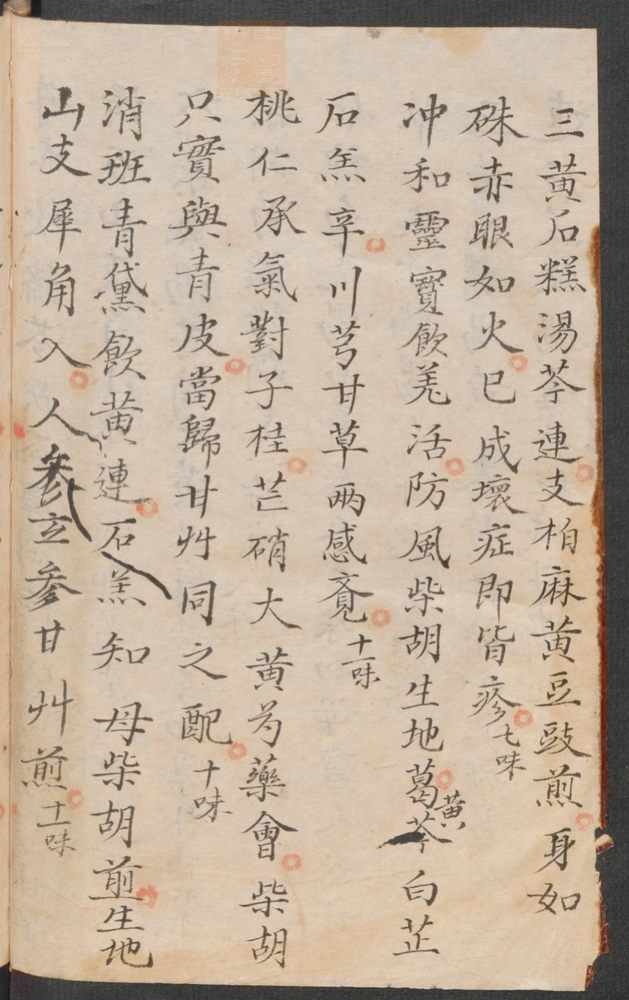 三黄石糕湯芩連支柏麻黄豆豉煎身如
硃赤眼如火已成壞症即皆疹七味
冲和靈寶飲羌活防風柴胡生地葛黄芩白芷
石羔辛川芎甘草兩感覔十一味
桃仁承氣對子桂芒硝大黄芍藥會柴胡
只實與青皮當歸甘艸同之配十味
消班青黛飲黄連石羔知母柴胡煎生地
山支犀角入人參玄參甘艸煎十一味